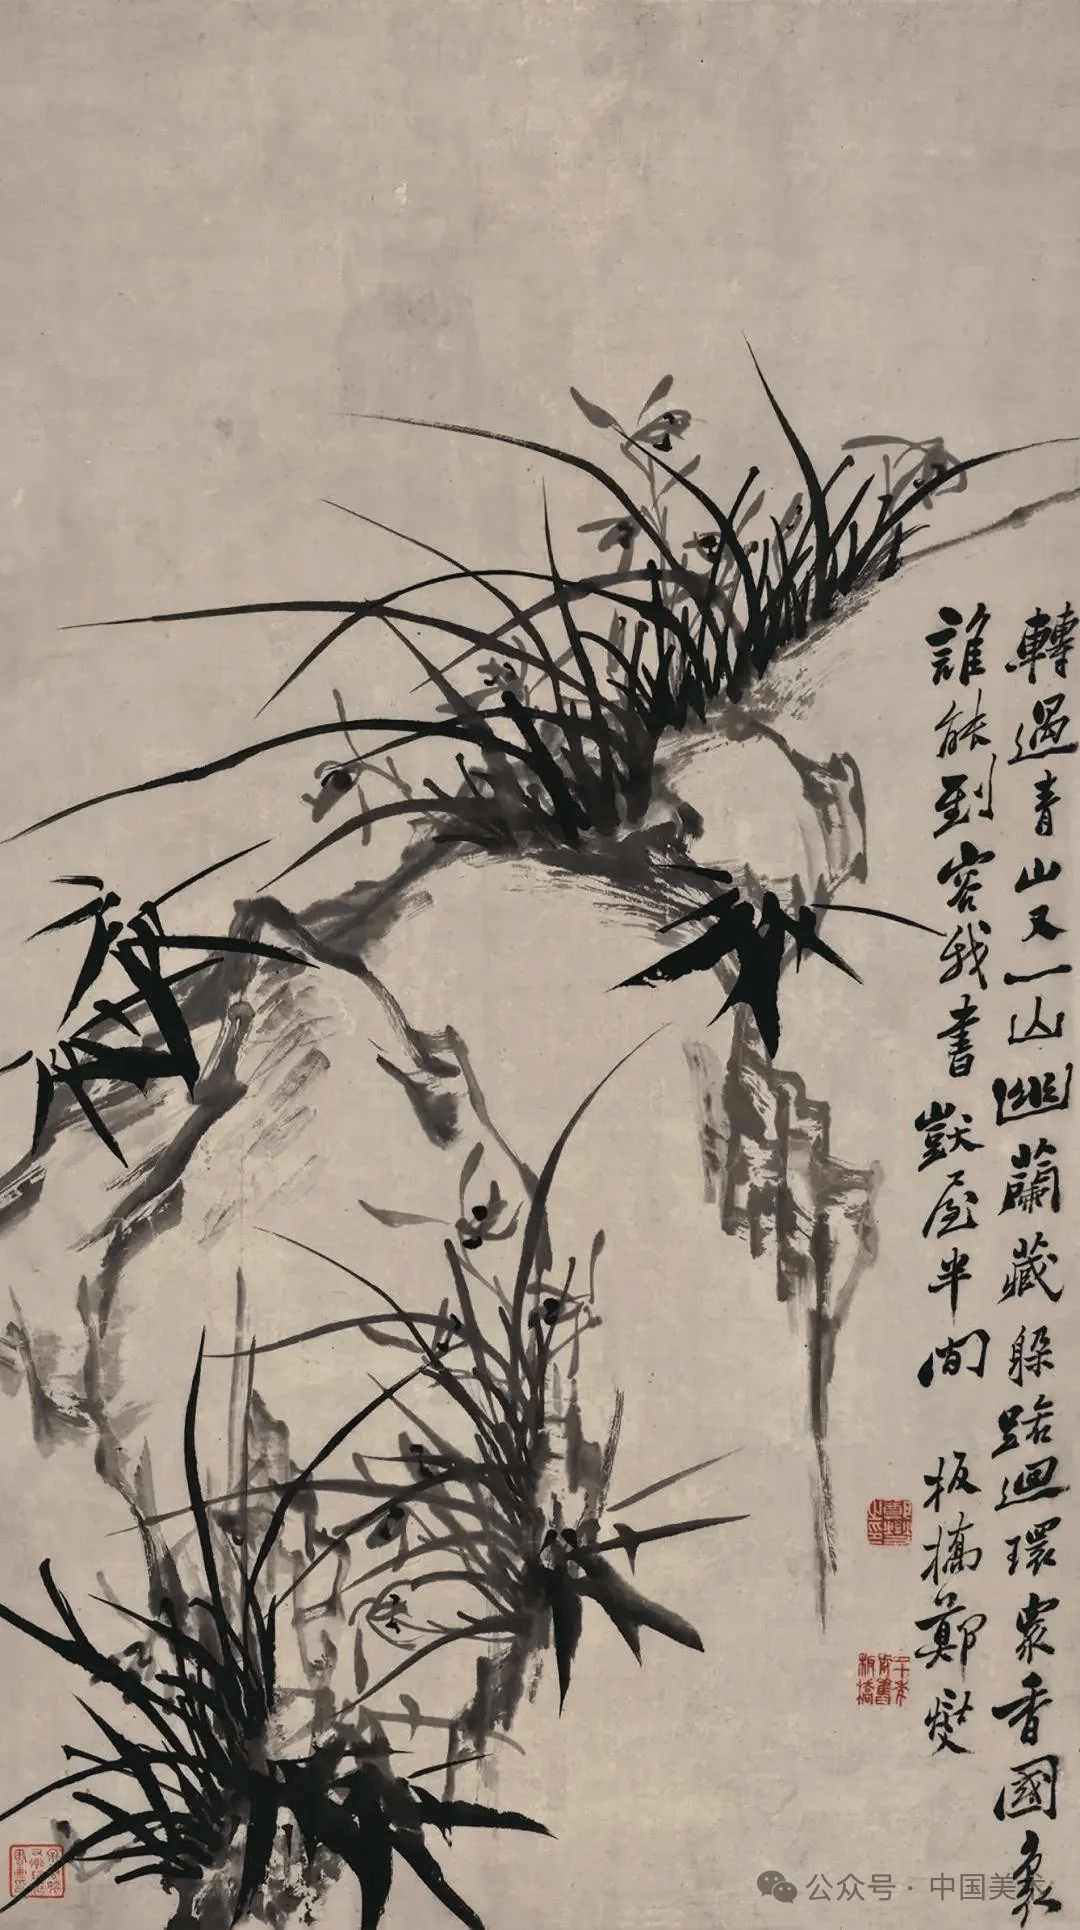 轉過青山又一山幽蘭藏躲路迴環衆香國裏
誰能到容我書獃屋半間
板橋鄭燮
二十年前舊板橋
公众号 · 中国美术